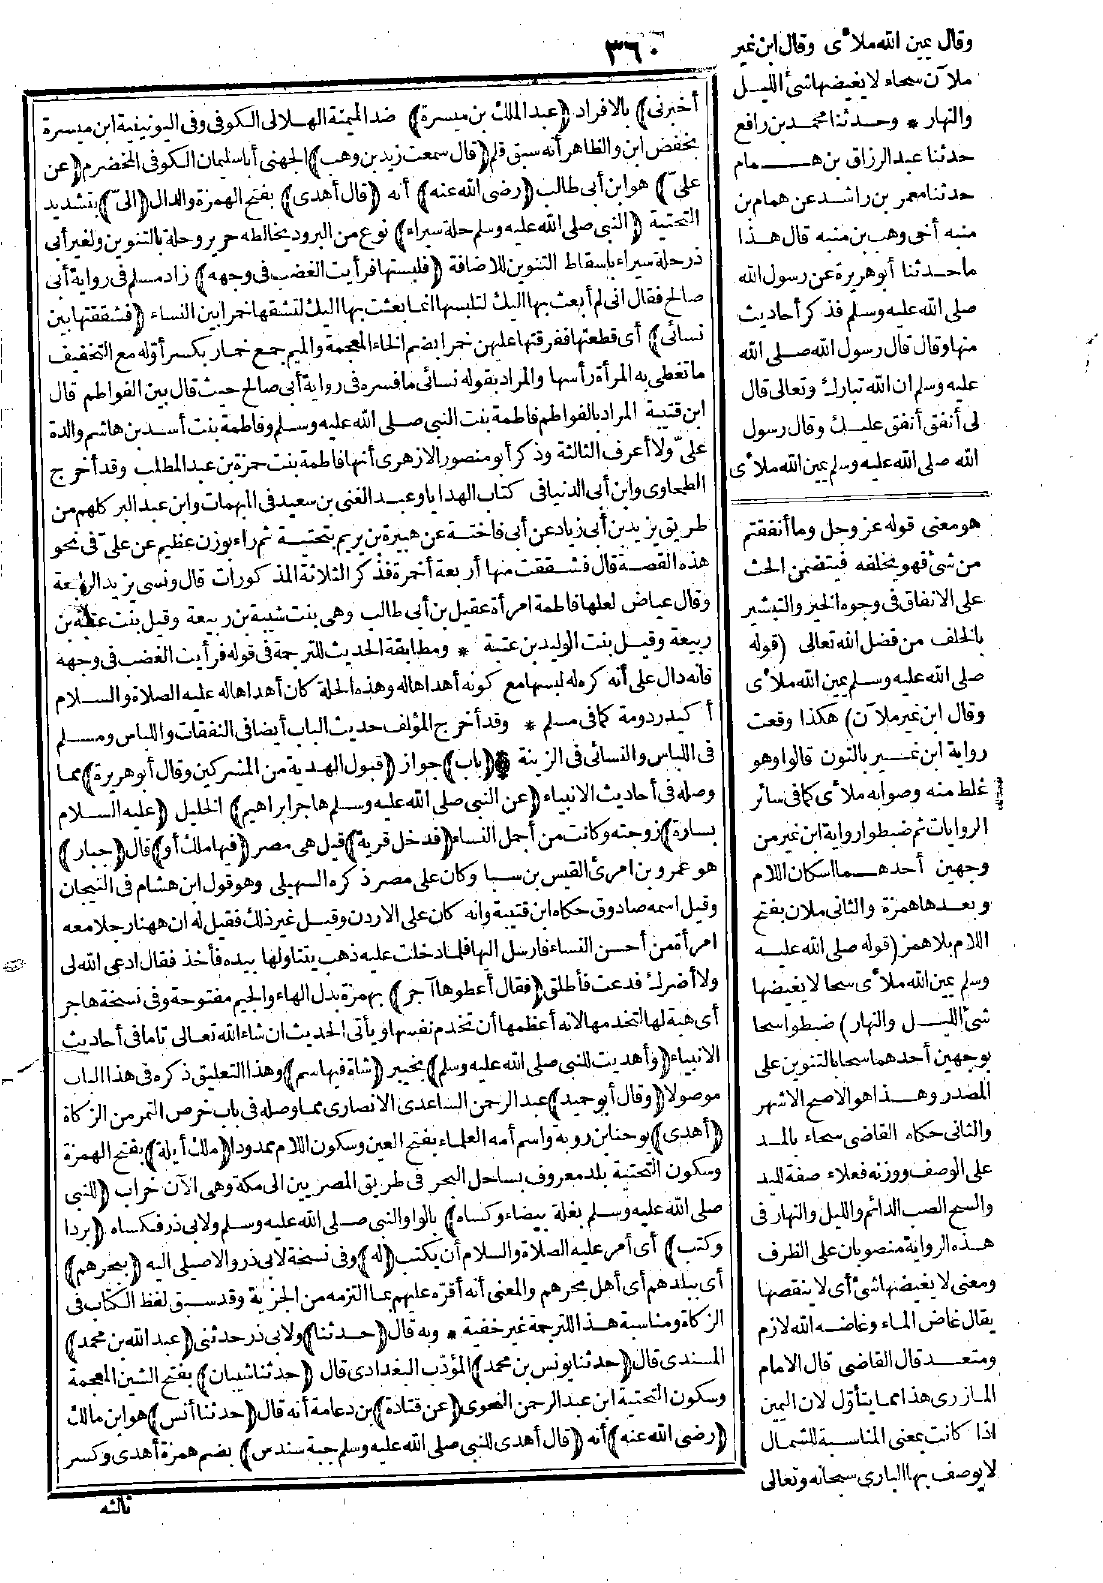 ٣٦٠
أخبرني) بالافراد (عبد الملك بن ميسرة) ضد الميمنة الهلالى الكوفى وفى اليونينية ابن ميسرة
بخفض ابن والظاهر أنه سبق قلم (قال سمعت زيد بن وهب) الجهنى أباسليمان الكوفى المخضرم (عن
علىّ) هو ابن أبى طالب (رضى الله عنه) أنه (قال أهدى) بفتح الهمزة والدال (الىّ) بتشديد
التحتية (النبى صلى الله عليه وسلم حلة سيراء) نوع من البرود يخالطه حرير وحلة بالتنوين ولغير أبى
ذر حلة سيراء باسقاط التنوين للاضافة (فلبستها فرأيت الغضب فى وجهه) زاد مسلم فى رواية أبى
صالح فقال انى لم أبعث بها اليك لتلبسها انما بعثت بها اليك لتشقها خمرا بين النساء (فشققتها بين
نسائى) أى قطعتها ففرقتها عليهن خمرا بضم الخاء المعجمة والميم جمع خمار بكسر أوّله مع التخفيف
ما تغطى به المرأة رأسها والمراد بقوله نسائى ما فسره فى رواية أبى صالح حيث قال بين الفواطم قال
ابن قتيبة المراد بالفواطم فاطمة بنت النبى صلى الله عليه وسلم وفاطمة بنت أسد بن هاشم والدة
علىّ ولا أعرف الثالثة وذكر أبو منصور الازهرى أنها فاطمة بنت حمزة بن عبد المطلب وقد أخرج
الطحاوى وابن أبى الدنيا فى كتاب الهدايا وعبد الغنى بن سعيد فى المبهمات وابن عبد البر كلهم من
طريق يزيد بن أبى زياد عن أبى فاختة عن هبيرة بن يريم بتحتية ثم راء بوزن عظيم عن علىّ فى نحو
هذه القصة قال فشققت منها أربعة أخمرة فذكر الثلاثة المذكورات قال ونسى يزيد الرابعة
وقال عياض لعلها فاطمة امرأة عقيل بن أبى طالب وهى بنت شيبة بن ربيعة وقيل بنت عتبة بن
ربيعة وقيل بنت الوليد بن عتبة * ومطابقة الحديث للترجمة فى قوله فرأيت الغضب فى وجهه
فانه دال على أنه كره له لبسها مع كونه أهداها له وهذه الحلة كان أهداها له عليه الصلاة والسلام
أكيدر دومة كما فى مسلم * وقد أخرج المؤلف حديث الباب أيضا فى النفقات واللباس ومسلم
فى اللباس والنسائى فى الزينة * (باب) جواز (قبول الهدية من المشركين وقال أبو هريرة) مما
وصله فى أحاديث الانبياء (عن النبى صلى الله عليه وسلم هاجر ابراهيم) الخليل (عليه السلام
بسارة) زوجته وكانت من أجمل النساء (فدخل قرية) قيل هى مصر (فيها ملك أو) قال (جبار)
هو عمرو بن امرئ القيس بن سبا وكان على مصر ذكره السهيلى وهو قول ابن هشام فى التيجان
وقيل اسمه صادوق حكاه ابن قتيبة وانه كان على الاردن وقيل غير ذلك فقيل له ان ههنا رجلا معه
امرأة من أحسن النساء فارسل اليها فلما دخلت عليه ذهب يتناولها بيده فأخذ فقال ادعى الله لى
ولا أضرك فدعت فأطلق (فقال أعطوها آجر) بهمزة بدل الهاء والجيم مفتوحة وفى نسخة هاجر
أى هبة لها لتخدمها لانه أعظمها أن تخدم نفسها ويأتى الحديث ان شاء الله تعالى تاما فى أحاديث
الانبياء (وأهديت للنبى صلى الله عليه وسلم) بخيبر (شاة فيها سم) وهذا التعليق ذكره فى هذا الباب
موصولا (وقال أبو حميد) عبد الرحمن الساعدى الانصارى مما وصله فى باب خرص التمر من الزكاة
(أهدى) يوحنا بن روبة واسم أمه العلماء بفتح العين وسكون اللام ممدودا (ملك أيلة) بفتح الهمزة
وسكون التحتية بلد معروف بساحل البحر فى طريق المصريين الى مكة وهى الآن خراب (للنبى
صلى الله عليه وسلم بغلة بيضاء وكساه) بالواو النبى صلى الله عليه وسلم ولابى ذر فكساه (بردا
وكتب) أى أمر عليه الصلاة والسلام أن يكتب (له) وفى نسخة لابى ذر والاصيلى اليه (ببحرهم)
أى ببلدهم أى أهل بحرهم والمعنى أنه أقره عليهم بما التزمه من الجزية وقد سبق لفظ الكتاب فى
الزكاة ومناسبة هذا للترجمة غير خفية * وبه قال (حدثنا) ولابى ذر حدثنى (عبد الله بن محمد)
المسندى قال (حدثنا يونس بن محمد) المؤدّب البغدادى قال (حدثنا شيبان) بفتح الشين المعجمة
وسكون التحتية ابن عبد الرحمن النحوى (عن قتادة) بن دعامة أنه قال (حدثنا أنس) هو ابن مالك
(رضى الله عنه) أنه (قال أهدى للنبى صلى الله عليه وسلم جبة سندس) بضم همزة أهدى وكسر
ثالثه
وقال يمين الله ملأى وقال ابن نمير
ملآن سحاء لا يغيضها شئ الليل
والنهار * وحدثنا محمد بن رافع
حدثنا عبد الرزاق بن همام
حدثنا معمر بن راشد عن همام بن
منبه أخى وهب بن منبه قال هذا
ما حدثنا أبو هريرة عن رسول الله
صلى الله عليه وسلم فذكر أحاديث
منها وقال قال رسول الله صلى الله
عليه وسلم ان الله تبارك وتعالى قال
لى أنفق أنفق عليك وقال رسول
الله صلى الله عليه وسلم يمين الله ملأى
هو معنى قوله عز وجل وما أنفقتم
من شئ فهو يخلفه فيتضمن الحث
على الانفاق فى وجوه الخير والتبشير
بالخلف من فضل الله تعالى (قوله
صلى الله عليه وسلم يمين الله ملأى
وقال ابن نمير ملآن) هكذا وقعت
رواية ابن نمير بالنون قالوا وهو
غلط منه وصوابه ملأى كما فى سائر
الروايات ثم ضبطوا رواية ابن نمير من
وجهين أحدهما اسكان اللام
وبعدها همزة والثانى ملان بفتح
اللام بلا همز (قوله صلى الله عليه
وسلم يمين الله ملأى سحا لا يغيضها
شئ الليل والنهار) ضبطوا سحا
بوجهين أحدهما سحا بالتنوين على
المصدر وهذا هو الاصح الاشهر
والثانى حكاه القاضى سحاء بالمد
على الوصف ووزنه فعلاء صفة لليد
والسح الصب الدائم والليل والنهار فى
هذه الرواية منصوبان على الظرف
ومعنى لا يغيضها شئ أى لا ينقصها
يقال غاض الماء وغاضه الله لازم
ومتعد قال القاضى قال الامام
المازرى هذا مما يتأوّل لان اليمين
اذا كانت بمعنى المناسبة للشمال
لا يوصف بها البارى سبحانه وتعالى